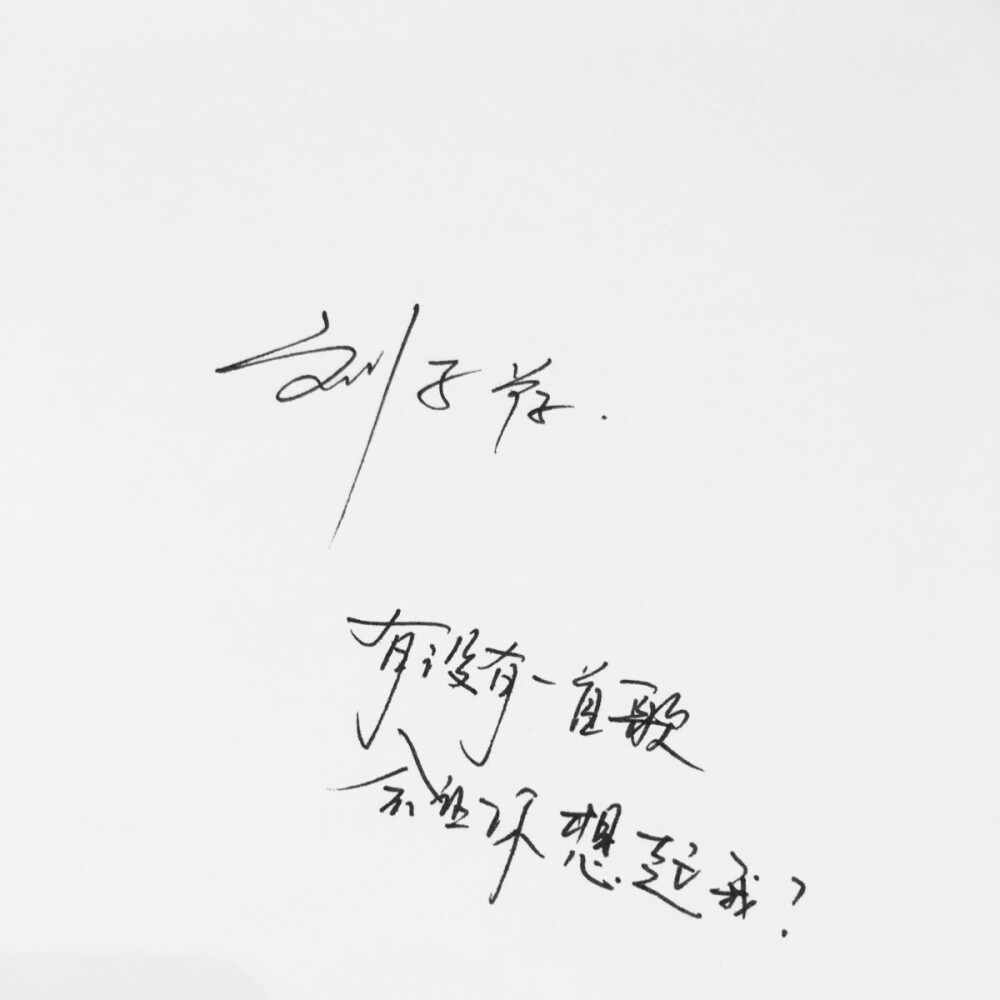 刘子荐.
有没有一首歌
会让你想起我?